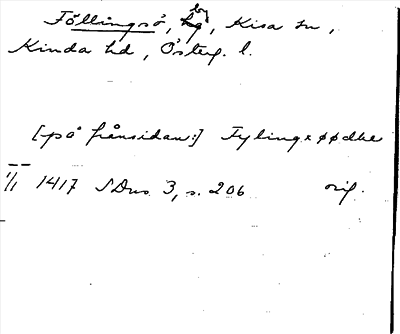 Föllingsö, hg, Kisa sn,
Kinda hd, Österg. l.
[på frånsidan:] Fylingxøødhe
1/1 1417 SDns 3, s. 206 orig.